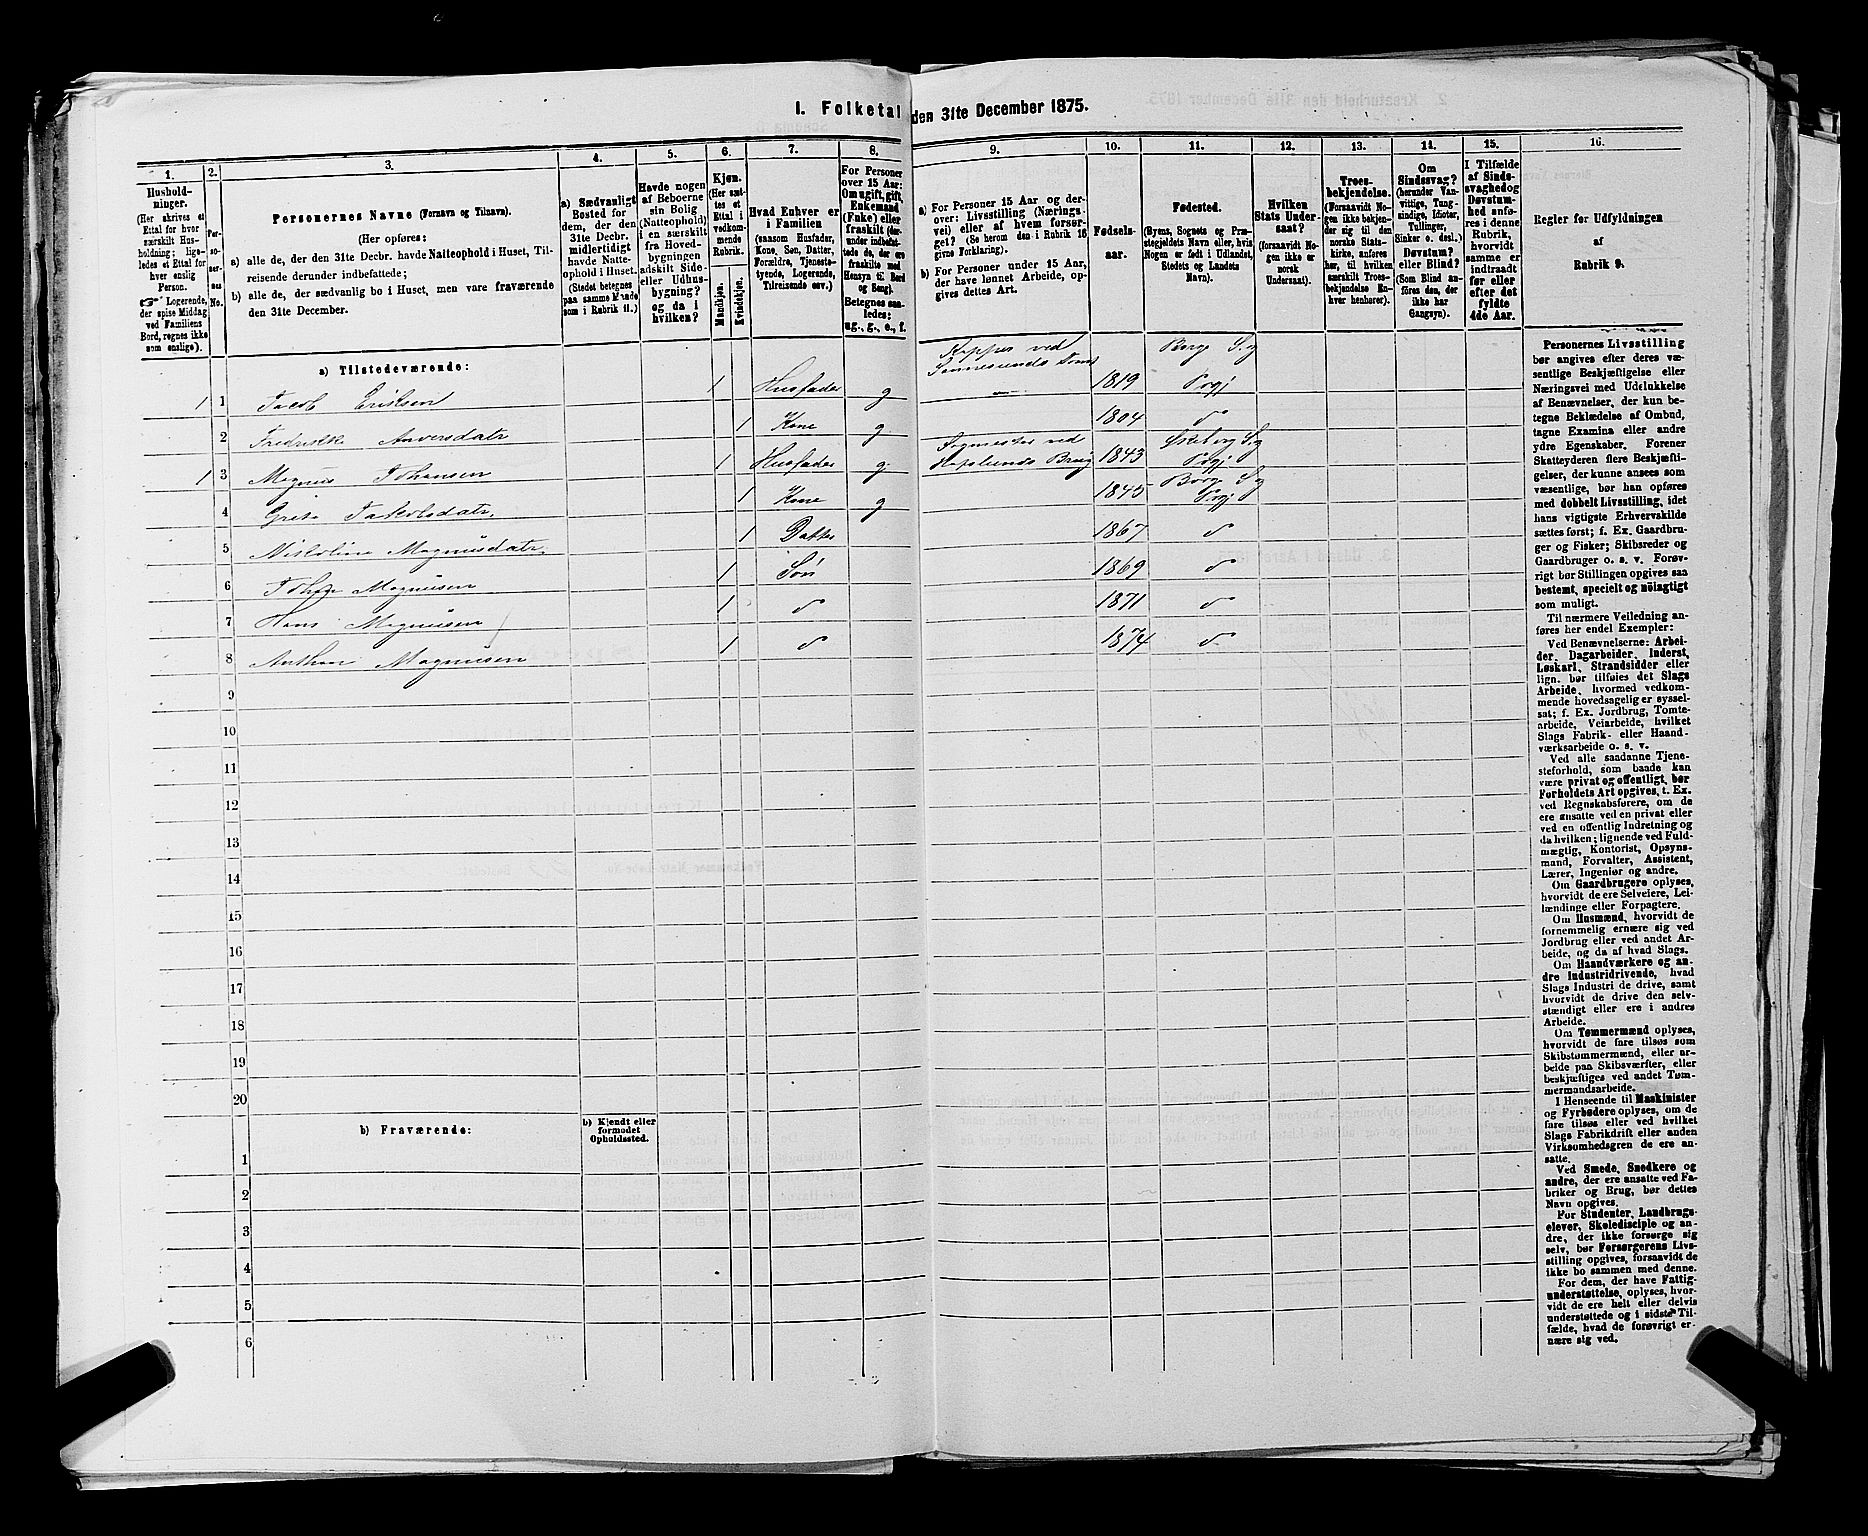 I. Folketal den 31te December 1875.
1.
Hushold-
ninger.
(Her skrives et
Ettal for hver
særskilt Hus-
holdning; lige-
ledes et Ettal for
hver enslig
Person.
☞ Logerende,
der spise Middag
ved Familiens
Bord, regnes ikke
som enslige).
2.
Per-
so-
ner-
nes
No.
3.
Personernes Navne (Fornavn og Tilnavn).
(Her opføres:
a) alle de, der den 31te Decbr. havde Natteophold i Huset, Til-
reisende derunder indbefattede;
b) alle de, der sædvanlig bo i Huset, men vare fraværende
den 31te December.
4.
a) Sædvanligt
Bosted for
dem, der den
31te Decbr.
midlertidigt
havde Natte-
ophold i Huset.
(Stedet betegnes
paa samme Maade
som i Rubrik 11.)
5.
Havde nogen
af Beboerne
sin Bolig
(Natteophold)
i en særskilt
fra Hoved-
bygningen
adskilt Side-
eller Udhus-
bygning?
og da i
hvilken?
6.
Kjøn.
(Her sæt-
tes et
Ettal i
vedkom-
mende
Rubrik.
Mandkjøn.
Kvindekjøn.
7.
Hvad Enhver er
i Familien
(saasom Husfader,
Kone, Søn, Datter,
Forældre, Tjeneste-
tyende, Logerende,
Tilreisende osv.)
8.
For Personer
over 15 Aar:
Om ugift, gift,
Enkemand
(Enke) eller
fraskilt (der-
under indbefat-
tede de, der ere
fraskilte med
Hensyn til Bord
og Seng).
Betegnes saa-
ledes:
ug., g., e., f.
9.
a) For Personer 15 Aar og der-
over: Livsstilling (Nærings-
vei) eller af hvem forsør-
get? (Se herom den i Rubrik 16
givne Forklaring).
b) For Personer under 15 Aar,
der have lønnet Arbeide, op-
gives dettes Art.
10.
Fødsels-
aar.
11.
Fødested.
(Byens, Sognets og Præ-
stegjeldets Navn eller, hvis
Nogen er født i Udlandet,
Stedets og Landets
Navn).
12.
Hvilken
Stats Under-
saat?
(forsaavidt No-
gen ikke er
norsk
Undersaat).
13.
Troes-
bekjendelse.
(Forsaavidt No-
gen ikke bekjen-
der sig til den
norske Stats-
kirke, anføres
her, til hvilken
særskilt Troes-
bekjendelse En-
hver henhører).
14.
Om
Sindssvag?
(herunder Van-
vittige, Tung-
sindige, Idioter,
Tullinger,
Sinker o. desl.)
Døvstum?
eller Blind?
(Som Blind an-
føres den, der
ikke har
Gangsyn).
15.
I Tilfælde
af Sinds-
svaghed og
Døvstum-
hed anfø-
res i denne
Rubrik,
hvorvidt
samme er
indtraadt
før eller
efter det
fyldte
4de Aar.
16.
Regler for Udfyldningen
af
Rubrik 9.
a) Tilstedeværende:
1 1 Jacob Eriksen 1 Husfader g Kipper ved 1819 Borge Sg Pgj
2 Fredrikke Anversdatr 1 Kone g 1804 do
1 3 Magnus Johansen 1 Husfader g. Sogmester ved Hafslunds Brug 1843 Skeberg Sg Pgj
4 Grete Jakobsdatr. 1 Kone g 1845 Borge Sg Pgj
5 Nikoline Magnusdatr. 1 Datter 1867 do
6 Johan Magnusen 1 Søn 1869 do
7 Hans Magnusen 1 do 1871 do
8 Anthon Magnusen 1 do 1874 do
9
10
11
12
13
14
15
16
17
18
19
20
b) Fraværende:
b) Kjendt eller
formodet
Opholdssted.
1
2
3
4
5
6
Personernes Livsstilling
bør angives efter deres væ-
sentlige Beskjæftigelse eller
Næringsvei med Udelukkelse
af Benævnelser, der kun be-
tegne Beklædelse af Ombud,
tagne Examina eller andre
ydre Egenskaber. Forener
Skatteyderen flere Beskjæfti-
gelser, der kunne ansees som
væsentlige, bør han opføres
med dobbelt Livsstilling, idet
hans vigtigste Erhvervskilde
sættes først; f. Ex. Gaardbru-
ger og Fisker; Skibsreder og
Gaardbruger o. s. v. Forøv-
rigt bør Stillingen opgives saa
bestemt, specielt og nøiagtigt
som muligt.
Til nærmere Veiledning an-
føres her endel Exempler:
Ved Benævnelserne: Arbei-
der, Dagarbeider, Inderst,
Løskarl, Strandsidder eller
lign. bør tilføies det Slags
Arbeide, hvormed vedkom-
mende hovedsagelig er syssel-
sat; f. Ex. Jordbrug, Tomte-
arbeide, Veiarbeide, hvilket
Slags Fabrik- eller Haand-
værksarbeide o. s. v.
Ved alle saadanne Tjene-
steforhold, som baade kan
være privat og offentligt, bør
Forholdets Art opgives, f. Ex.
ved Regnskabsførere, om de
ere ansatte ved en privat eller
ved en offentlig Indretning og
da hvilken; lignende ved Fuld-
mægtig, Kontorist, Opsyns-
mand, Forvalter, Assistent,
Lærer, Ingeniør og andre.
Om Gaardbrugere oplyses,
hvorvidt de ere Selveiere, Lei-
lændinge eller Forpagtere.
Om Husmænd, hvorvidt de
fornemmelig ernære sig ved
Jordbrug eller ved andet Ar-
beide, og da af hvad Slags.
Om Haandværkere og an-
dre Industridrivende, hvad
Slags Industri de drive, samt
hvorvidt de drive den selv-
stændigt eller ere i andres
Arbeide.
Om Tømmermænd oplyses,
hvorvidt de fare tilsøs som
Skibstømmermænd, eller ar-
beide paa Skibsværfter, eller
beskjæftiges ved andet Tøm-
mermandsarbeide.
I Henseende til Maskinister
og Fyrbødere oplyses, om de
fare tilsøs eller ved hvilket
Slags Fabrikdrift eller anden
Virksomhedsgren de ere an-
satte.
Ved Smede, Snedkere og
andre, der ere ansatte ved Fa-
briker og Brug, bør dettes
Navn opgives.
For Studenter, Landbrugs-
elever, Skoledisciple og an-
dre, der ikke forsørge sig
selv, bør Forsørgerens Livs-
stilling opgives, forsaavidt de
ikke bo sammen med denne.
For dem, der have Fattig-
understøttelse, oplyses, hvor-
vidt de ere helt eller delvis
understøttede og i sidste Til-
fælde, hvad de forøvrigt er-
nære sig ved.